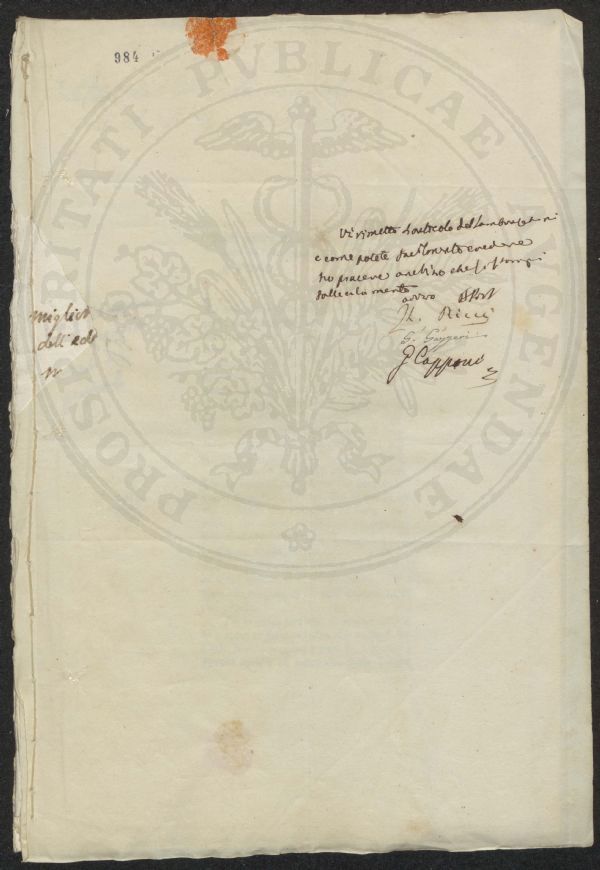 984
PROSPERITATI PVBLICAE AVGENDAE
Vi rimetto l'articolo del Lambruschini
e come potete
ho piacere anch'io che si stampi
sollecitamente
L. Ricci
G. Gazzeri
G Capponi
miglior
dell'ed